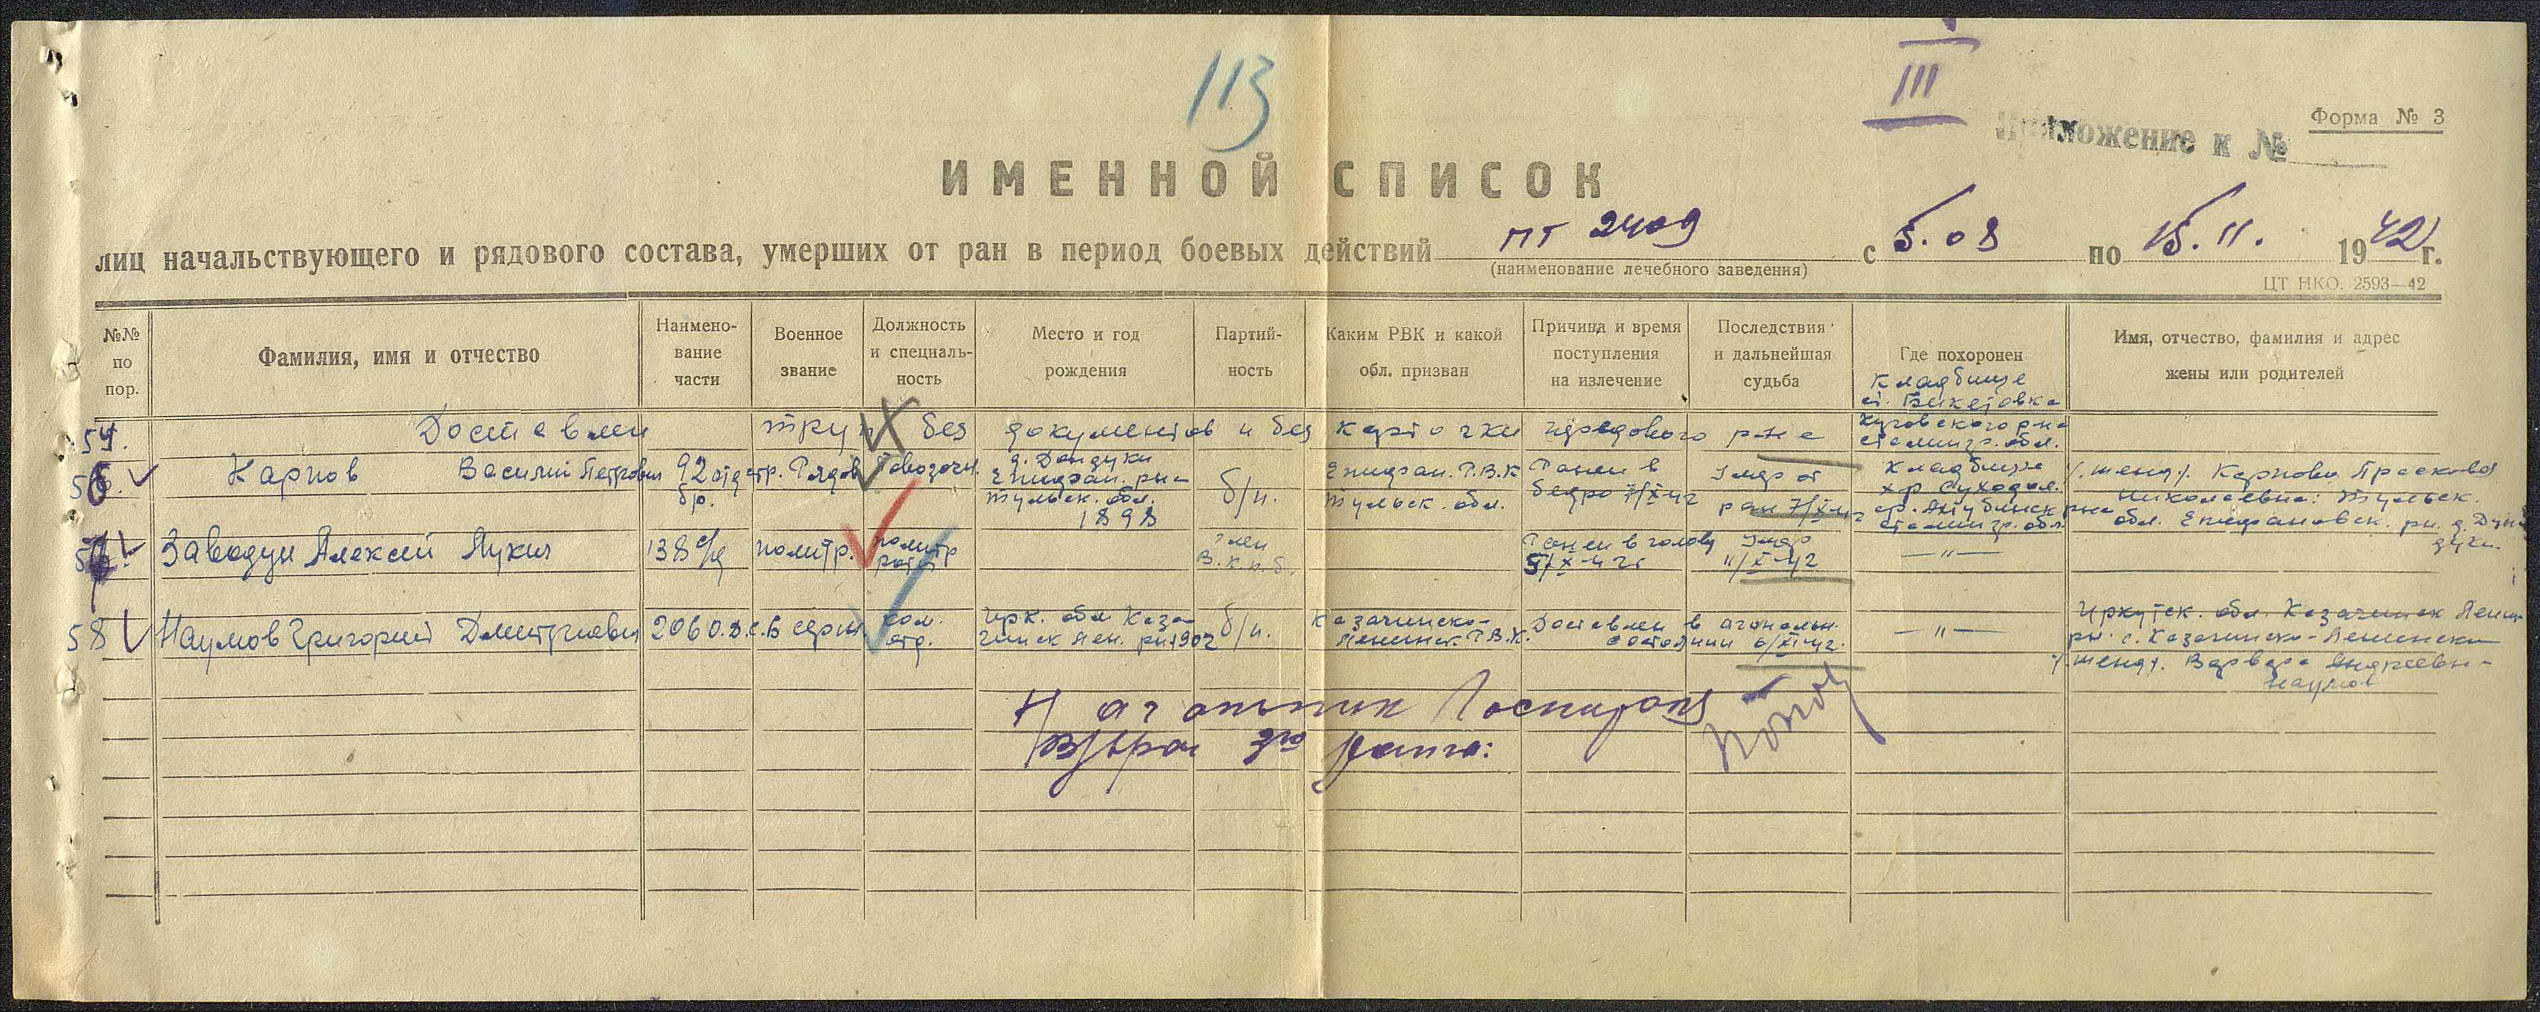 113
III
Приложение к №
Форма № 3
ИМЕННОЙ СПИСОК
лиц начальствующего и рядового состава, умерших от ран в период боевых действий ПГ 2409 с 5.08 по 15.11. 1942 г.
(наименование лечебного заведения)
ЦТ НКО. 2593—42
№№ по пор.
Фамилия, имя и отчество
Наимено-
вание
части
Военное
звание
Должность
и специаль-
ность
Место и год
рождения
Партий-
ность
Каким РВК и какой
обл. призван
Причина и время
поступления
на излечение
Последствия
и дальнейшая
судьба
Где похоронен
Имя, отчество, фамилия и адрес
жены или родителей
Доставлен труп без документов и без карточки передового р-на
Кладбище
ст. Бикетовка
ского р-на
сталингр. обл.
56. Карпов Василий Петрович
92 отд стр.
бр.
Рядов
Повозочн.
д. Дондуки
Епифан. р-н
Тульск. обл.
1898
б/п.
Епифан. Р.В.К
Тульск. обл.
Ранен в
бедро 7/X-42
Умер от
ран 7/X-42
Кладбище
хр Суходол.
ср. Ахтубинск р-на
сталингр. обл.
/.жена/. Карпова Прасковья
Николаевна: Тульск.
обл. Епифановск. рн. д. Дун
дуки.
Заводун Алексей Лукич
138 с/д
политр.
политр
роты
Член
В.к.п.б.
Ранен в голову
5/X-42г
Умер
11/X-42
—"—
58 Наумов Григорий Дмитриевич
206 о.в.с.б
серж.
ком.
отд.
Ирк. обл Каза-
чинск Лен. рн 1902
б/п.
Казачинско-
Ленинск. Р.В.К.
Доставлен в агональн.
состоянии 6/XI-42.
—"—
Иркутск. обл. Казачинск Ленин
рн. с. Казачинско-Ленинск
/.жена/. Варвара Андреевн-
Наумов
Начальник Госпиталя
В/врач 3го ранга: